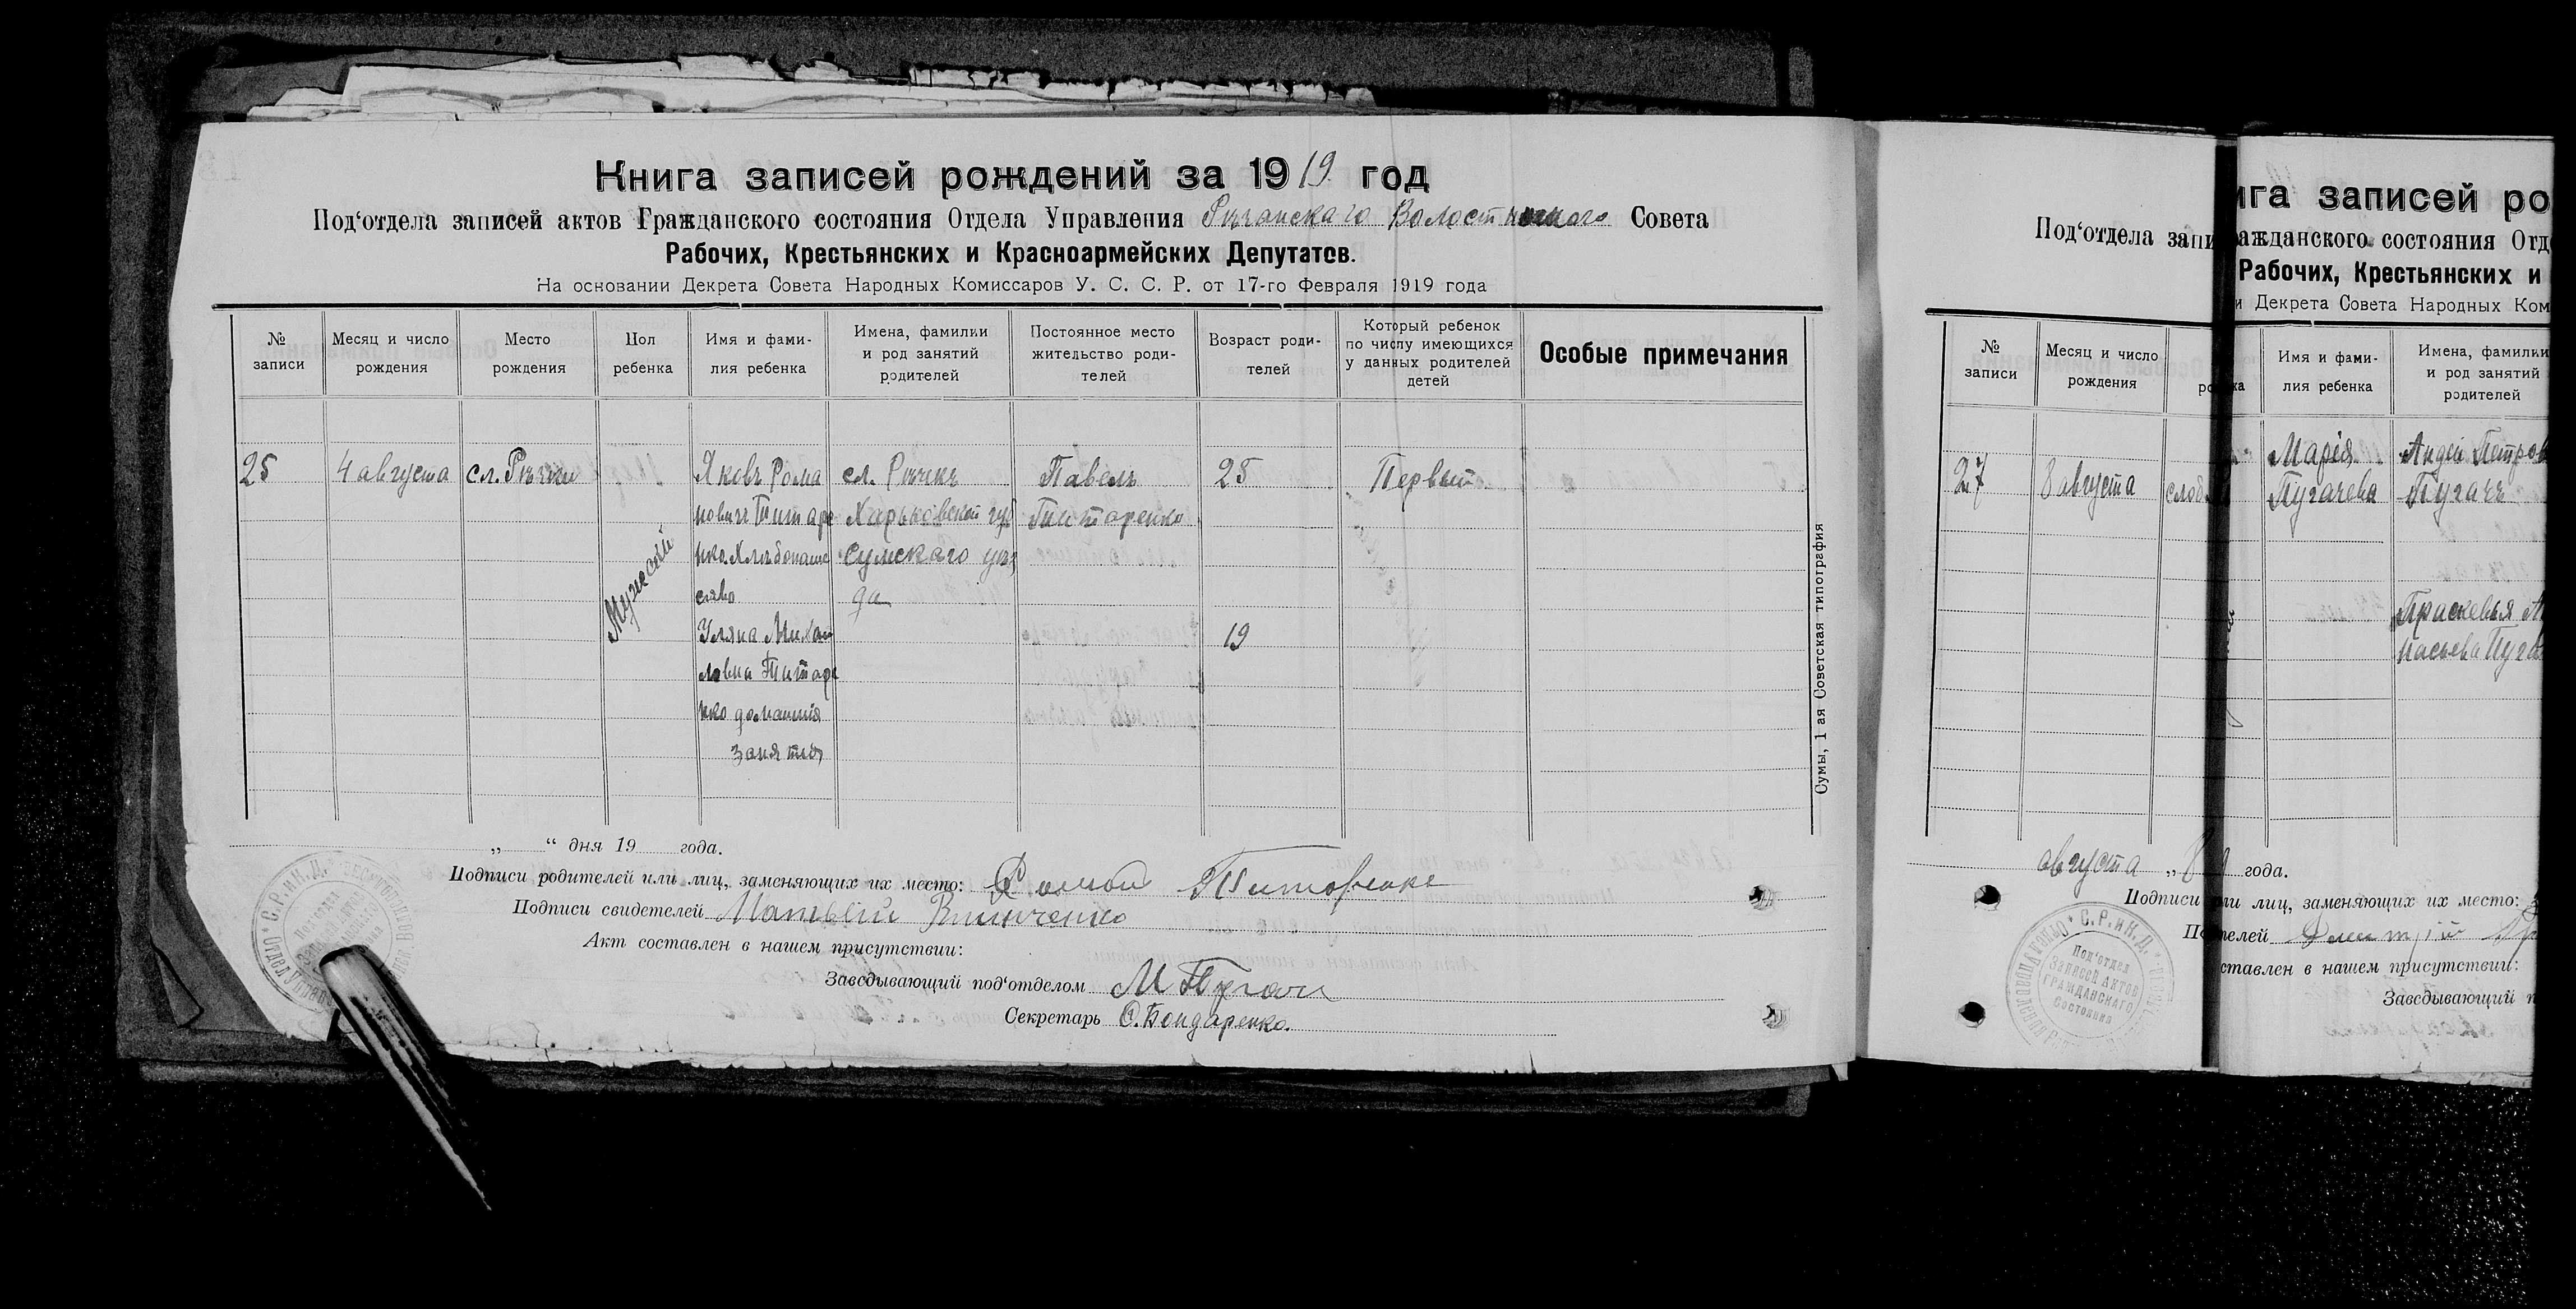 Книга записей рождений за 1919 год
Под‘отдела записей актов Гражданского состояния Отдела Управления Ричанскаго Волостного Совета
Рабочих, Крестьянских и Красноармейских Депутатов.
На основании Декрета Совета Народных Комиссаров У. С. С. Р. от 17-го Февраля 1919 года
№ записи
Месяц и число рождения
Место рождения
Пол ребенка
Имя и фами-
лия ребенка
Имена, фамилии
и род занятий
родителей
Постоянное место
жительство роди-
телей
Возраст роди-
телей
Который ребенок
по числу имеющихся
у данных родителей
детей
Особые примечания
25
4 августа
сл. Рички
Мужеский
Яковъ Рома
новичъ Титаре
нко. Хлѣбопаше
ство
Уляна Михаи
ловна Титаре
нко домашнія
занятія
сл. Ричекъ
Харьковской губ
Сумскаго уѣз
да
Павелъ
Титаренко
25
19
Первый
Сумы, 1 ая Советская типография
„ “ дня 19 года.
Подписи родителей или лиц, заменяющих их место: Роман Титаренко
Подписи свидетелей Матвей Винниченко
Акт составлен в нашем присутствии:
Заведывающий под‘отделом М Пугач
Секретарь О. Бондаренко.
ига записей ро
Под‘отдела запи
ажданского состояния Отд
Рабочих, Крестьянских и
и Декрета Совета Народных Ком
№ записи
Месяц и число
рождения
Имя и фами-
лия ребенка
Имена, фамилии
и род занятий
родителей
27
8 августа
слоб
Марія
Пугачева
Андей Петров
Пугачъ
Прискевья
Пуга
августа „8 года.
Подписи или лиц, заменяющих их место:
телей Дмитрій
ставлен в нашем присутствии:
Заведывающий п
С.Р.и К.Д.
Под‘отдел
Записей Актов
Гражданскаго
Состояния